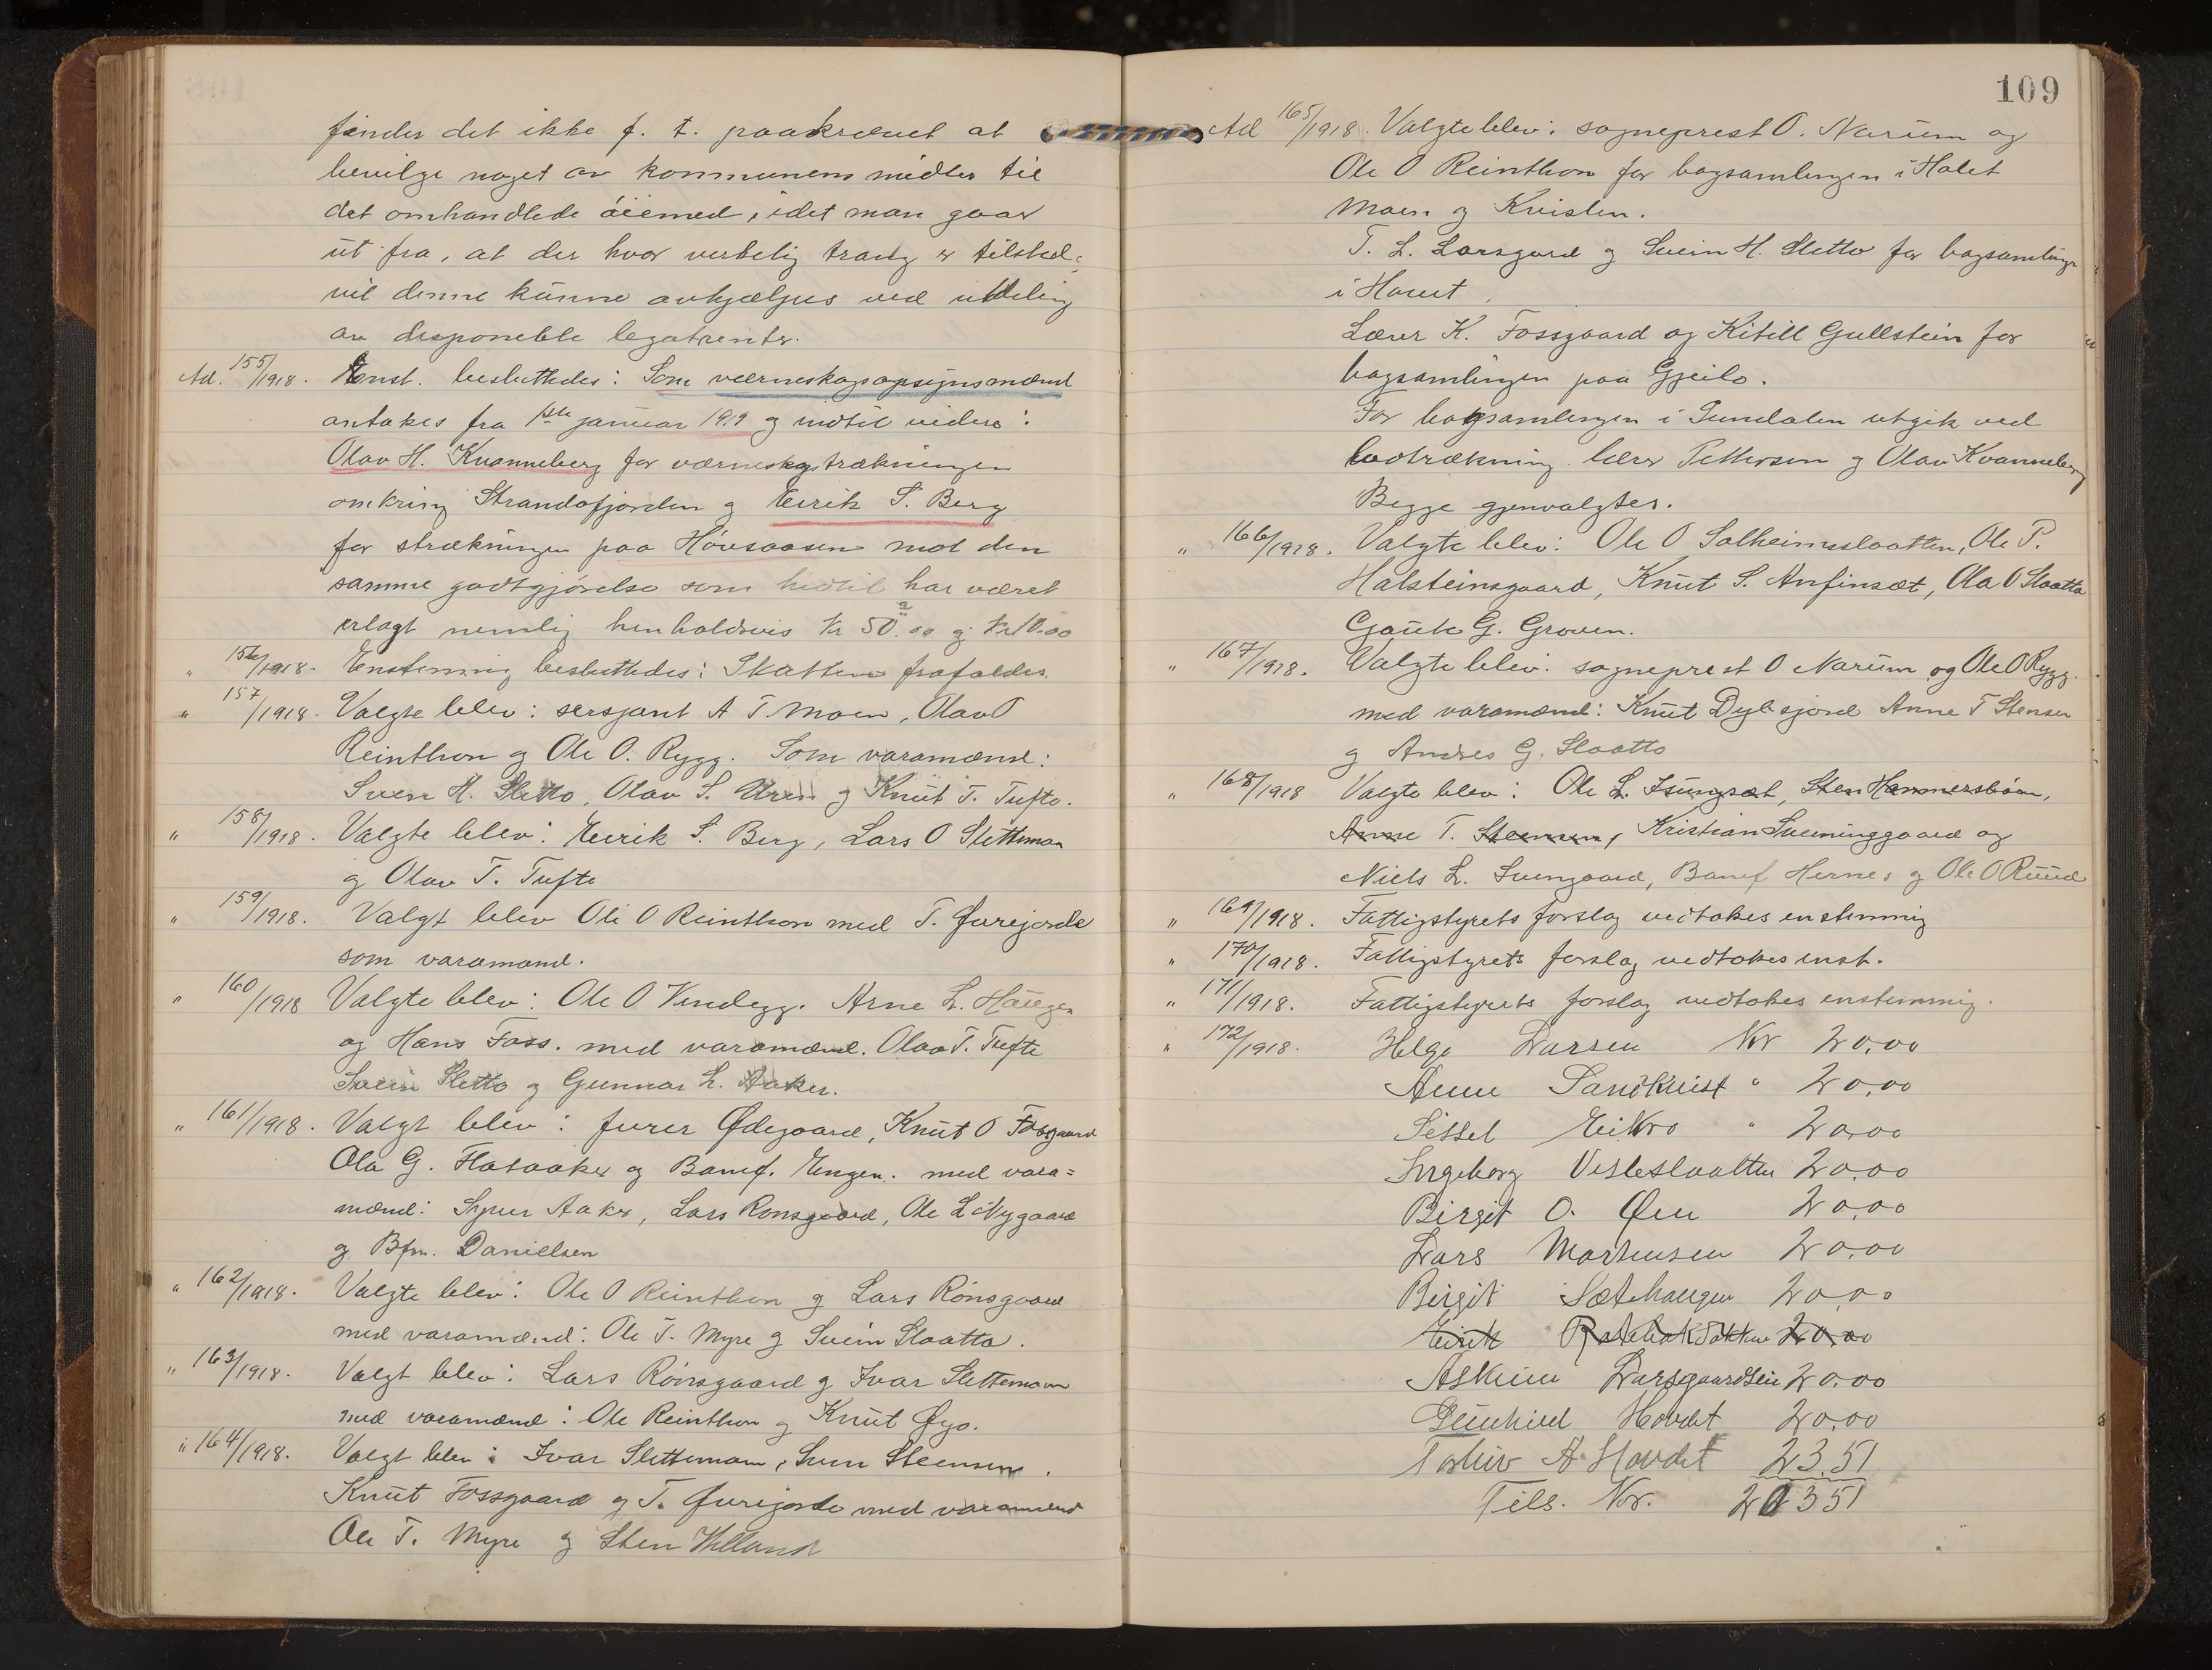 finder det ikke f. t. paakrævet at
bevilge noget av kommunens midler til
det omhandlede øiemed, idet man gaar
ut fra, at der hvor virkelig trang er tilsted=
vil denne kunne avhjælpes ved utdeling
av disponible legatrenter.
Ad. 155/1918. Enst. besluttedes: Som værneskogopsynsmænd
antakes fra 1ste januar 1919 og indtil videre:
Olav H. Kvanneberg for værneskogstrækningen
omkring Strandafjorden og Eirik S. Berg
for strækningen paa Høvsaasen mot den
samme godtgjørelse som hidtil har været
erlagt nemlig henholdsvis kr 50.00 og kr 10.00
" 156/1918. Enstemmig besluttedes: Skatten frafaldes.
" 157/1918. Valgte blev: sersjant A T Moen, Olav O
Reinthon og Ole O. Rygg. Som varamænd:
Svein H. Sletto, Olav S. og Knut T. Tufte.
" 158/1918. Valgte blev: Eirik S. Berg, Lars O Slettemon
og Olav T. Tufte
" 159/1918. Valgt blev Ole O Reinthon med T. Furejorde
som varamand.
" 160/1918 Valgte blev: Ole O Vindegg. Arne L. Haugen
og Hans Foss. med varamænd. Olav T. Tufte
Svein Sletto og Gunnar L. Aaker.
" 161/1918. Valgt blev: furer Ødegaard, Knut O Fosgaard
Ola G. Flataaker og Banef. Engen. med vara=
mænd: Syver Aaker, Lars Ronsgaard, Ole L Nygaard
og Bfm. Danielsen
" 162/1918. Valgte blev: Ole O Reinthon og Lars Rønsgaard
med varamænd: Ole T. Myre og Svein Slaatta.
" 163/1918. Valgt blev: Lars Rønsgaard og Ivar Slettemoen
med varamænd: Ole Reinthon og Knut Øyo.
" 164/1918. Valgt blev: Ivar Slettemoen, Steensen.
Knut Fossgaard og T. Furejorde med varamænd
Ole T. Myre og Sten Villand
109
Ad 165/1918. Valgte blev: sogneprest O. Narum og
Ole O Reinthon for bogsamlingen i Holet
Moen og Kvislen.
T. L. Larsgard og Svein H. Sletto for bogsamlinge
i Hovet.
Lærer K. Fossgaard og Kitill Gullstein for
bogsamlingen paa Gjeilo.
For bogsamlingen i Sundalen utgik ved
lodtrækning lærer Pettersen og Olav Kvanneberg
Begge gjenvalgtes.
" 166/1918. Valgte blev: Ole O Solheimsslaatten, Ole P.
Halsteinsgaard, Knut S. Anfinset, Ola O Slaatta
Gaute G. Groven.
" 167/1918. Valgte blev: sogneprest O Narum og Ole O Rygg.
med varamænd: Knut Dyksjord Anne T Stensen
og Andres G. Slaatto
" 168/1918 Valgte blev: Ole L. Isungset, Sten Hammersbøen,
Anne T. Steensen, Kristian Sveininggaard og
Niels L. Svengaard, Banef Hernes og Ole O Ruud
" 169/1918. Fattigstyrets forslag vedtokes enstemmig
" 170/1918. Fattigstyrets forslag vedtokes enst.
" 171/1918. Fattigstyrets forslag vedtokes enstemmig.
" 172/1918. Helge Larsen Kr 20.00
Anne Sandkvist " 20.00
Sissel Eikro " 20.00
Ingeborg Vesleslaatten 20.00
Birgit O. Øen 20.00
Lars Mortensen 20.00
Birgit Sætehaugen 20.00
Eirik 20.00
Larsgaardslii 20.00
Gunhild Hovdet 20.00
A Hovdet 23.51
Tils. Kr. 20351